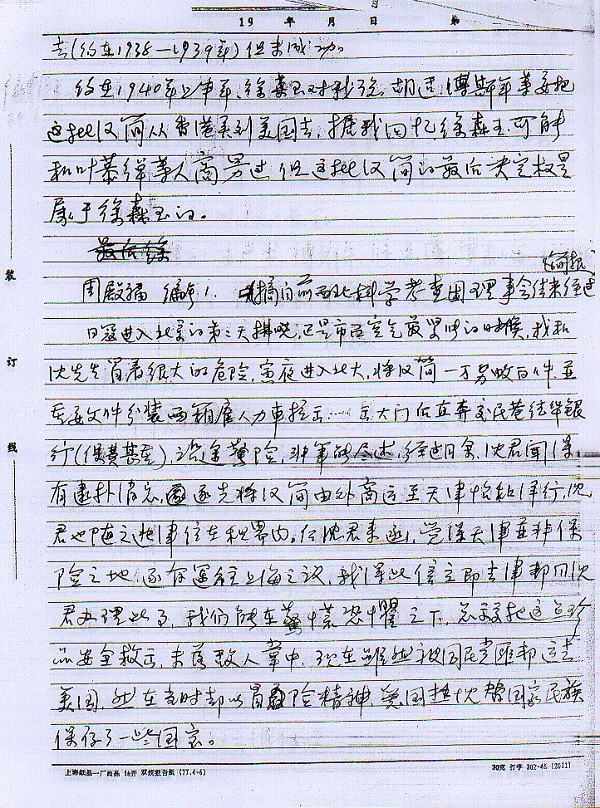 19 年 月 日 第
去(约在1938—1939年)但未成功。
约在1940年上半年,徐森玉对我说,胡适、傅斯年等要把
这批汉简从香港弄到美国去,据我回忆徐森玉可能
和叶恭绰等人商量过,但这批汉简的最后决定权是
属于徐森玉的。
最后徐
周殿福 编号1. 摘自前西北科学考查团理事会结束经过
日寇进入北京的第三天拂晓,正是市面空气最紧张的时候,我和
沈先生冒着很大的危险,黄夜进入北大,将汉简一万另数百件並
重要文件分装两箱雇人力车拉出 出大门后直奔交民巷德华银
行(保费甚重),沿途黄险,非笔能尽述,经过月余,沈君闻保
有逮扑消息,遂先将汉简由外商运至天津怡和津行,沈
君也随之赴津住在租界内。何沈君来函,觉得天津並非保
险之地 遂有运往上海之议,我得此信立即去津帮同沈
君办理此事,我们能在惊慌恐惧之下,总算把这点珍
品安全救出,未落敌人掌中,现在虽然被国民党匪邦运去
美国,然在当时却以冒险精神,爱国热忱替国家民族
保存了一些国宝。
装
订
线
上海纸品一厂出品 16开 双线报告纸 (77.4-6)
30克 打字 302-45 (2011)